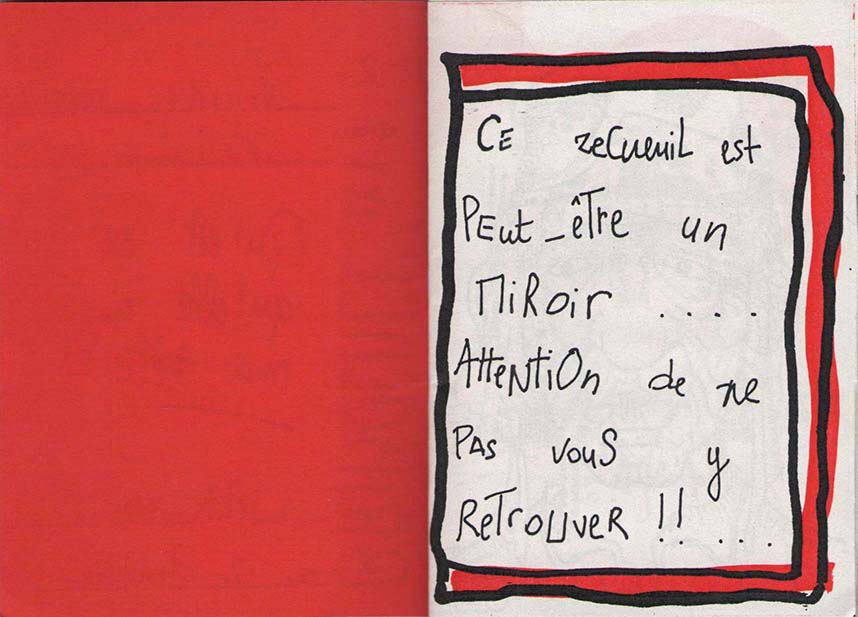 CE recueuiL est
PEut_êTre un
MiRoir .....
AtteNtiOn de ne
PAS vouS y
ReTroUver !! ...